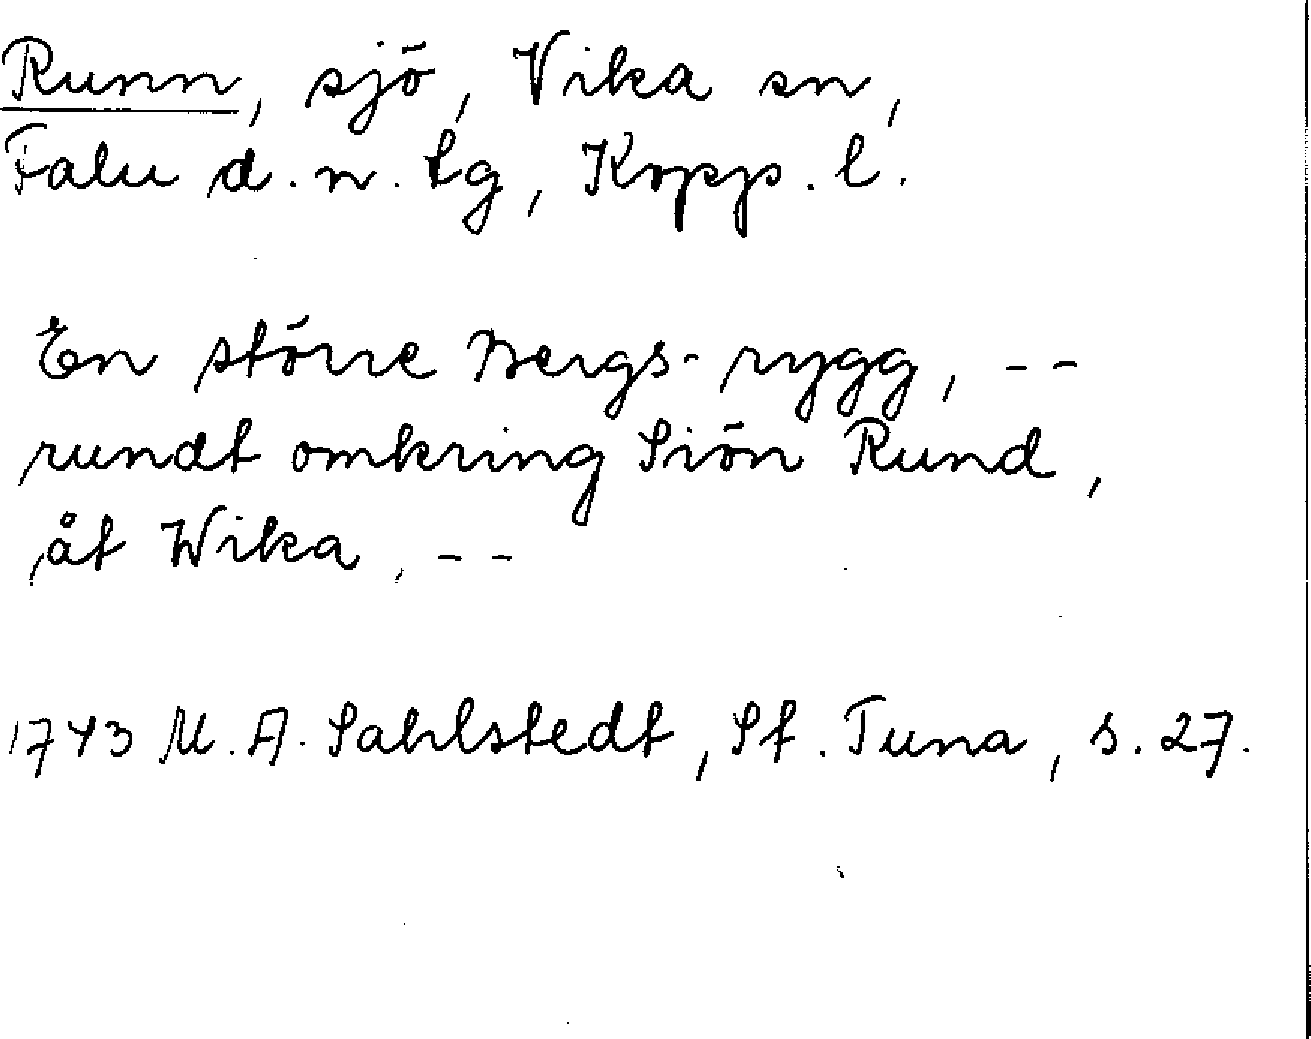 Runn, sjö, Vika sn,
Falu d.n. tg, Kopp. l.
En större Bergs-rygg, --
rundt omkring Siön Rund,
åt Wika, --
1743 M.A. Sahlstedt, St. Tuna, s. 27.